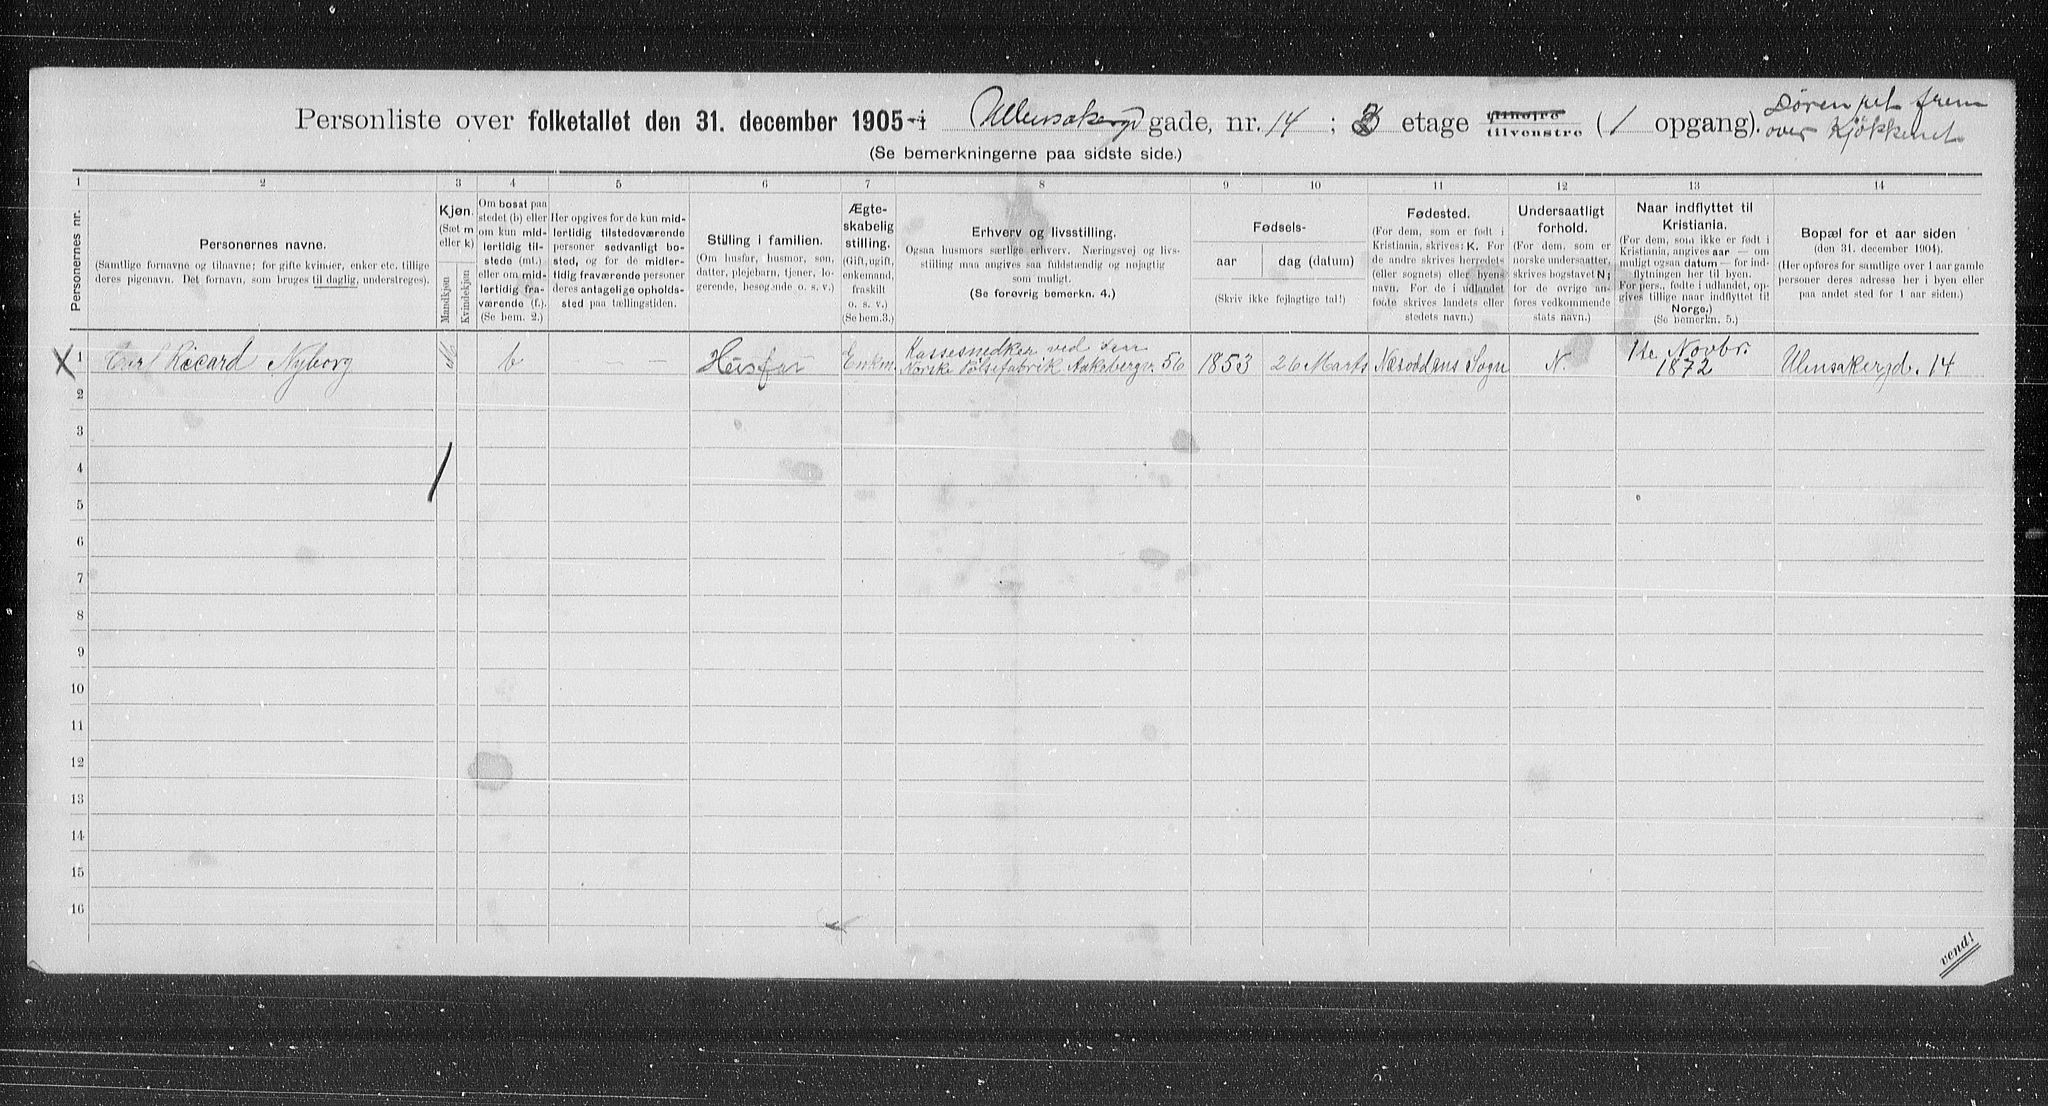 Personliste over folketallet den 31. december 1905 i Ullensakergd gade, nr. 14 ; 3 etage tilhøire tilvenstre (1 opgang). Døren ret frem over Kjøkkenet
(Se bemerkningerne paa sidste side.)
1 2 3 4 5 6 7 8 9 10 11 12 13 14
Personernes nr.
Personernes navne.
(Samtlige fornavne og tilnavne; for gifte kvinder, enker etc. tillige
deres pigenavn. Det fornavn, som bruges til daglig, understreges).
Kjøn.
(Sæt m
eller k)
Mandkjøn
Kvindekjøn
Om bosat paa
stedet (b) eller
om kun mid-
lertidig til-
stede (mt.)
eller om mid-
lertidig fra-
værende (f.).
(Se bem. 2.)
Her opgives for de kun mid-
lertidig tilstedeværende
personer sedvanligt bo-
sted, og for de midler-
tidig fraværende personer
deres antagelige opholds-
sted paa tællingstiden.
Stilling i familien.
(Om husfar, husmor, søn,
datter, plejebarn, tjener, lo-
gerende, besøgende o. s. v.)
Ægte-
skabelig
stilling.
(Gift, ugift,
enkemand,
fraskilt
o. s. v.)
(Se bem.3.)
Erhverv og livsstilling.
Ogsaa husmors særlige erhverv. Næringsvej og livs-
stilling maa angives saa fuldstændig og nøjagtig
som muligt.
(Se forøvrig bemerkn. 4.)
Fødsels-
aar dag (datum)
(Skriv ikke fejlagtige tal!)
Fødested.
(For dem, som er født i
Kristiania, skrives: K. For
de andre skrives herredets
(eller sognets) eller byens
navn. For de i udlandet
fødte skrives landets eller
stedets navn.)
Undersaatligt
forhold.
(For dem, som er
norske undersaatter,
skrives bogstavet N;
for de øvrige an-
føres vedkommende
stats navn.)
Naar indflyttet til
Kristiania.
(For dem, som ikke er født i
Kristiania, angives aar — om
muligt ogsaa datum — for ind-
flytningen her til byen.
For pers., fødte i udlandet, op-
gives tillige naar indflyttet til
Norge.)
(Se bemerkn. 5.)
Bopæl for et aar siden
(den 31. december 1904).
(Her opføres for samtlige over 1 aar gamle
personer deres adresse her i byen eller
paa andet sted for 1 aar siden.)
X 1 Carl Ricard Nyborg M b — — Husfar Enkm. Kassesnedker ved den
Norske Pølsefabrik Aakebergv. 56 1853 26 Marts Næsoddens Sogn N. 1te Novbr.
1872 Ulensakergd. 14
2
3
4
5
6
7
8
9
10
11
12
13
14
15
16
vend!